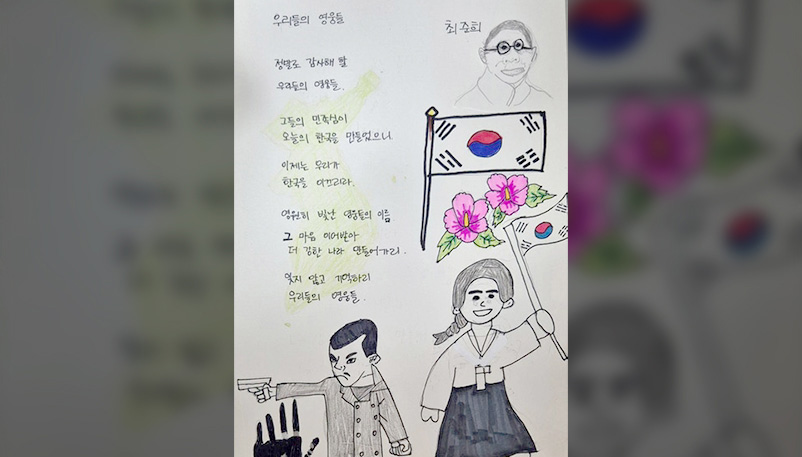 우리들의 영웅들
최준희
정말로 감사해 할
우리들의 영웅들.
그들의 민족심이
오늘의 한국을 만들었으니.
이제는 우리가
한국을 이끄리라.
영원히 빛날 영웅들의 이름
그 마음 이어받아
더 강한 나라 만들어가리.
잊지 않고 기억하리
우리들의 영웅들.